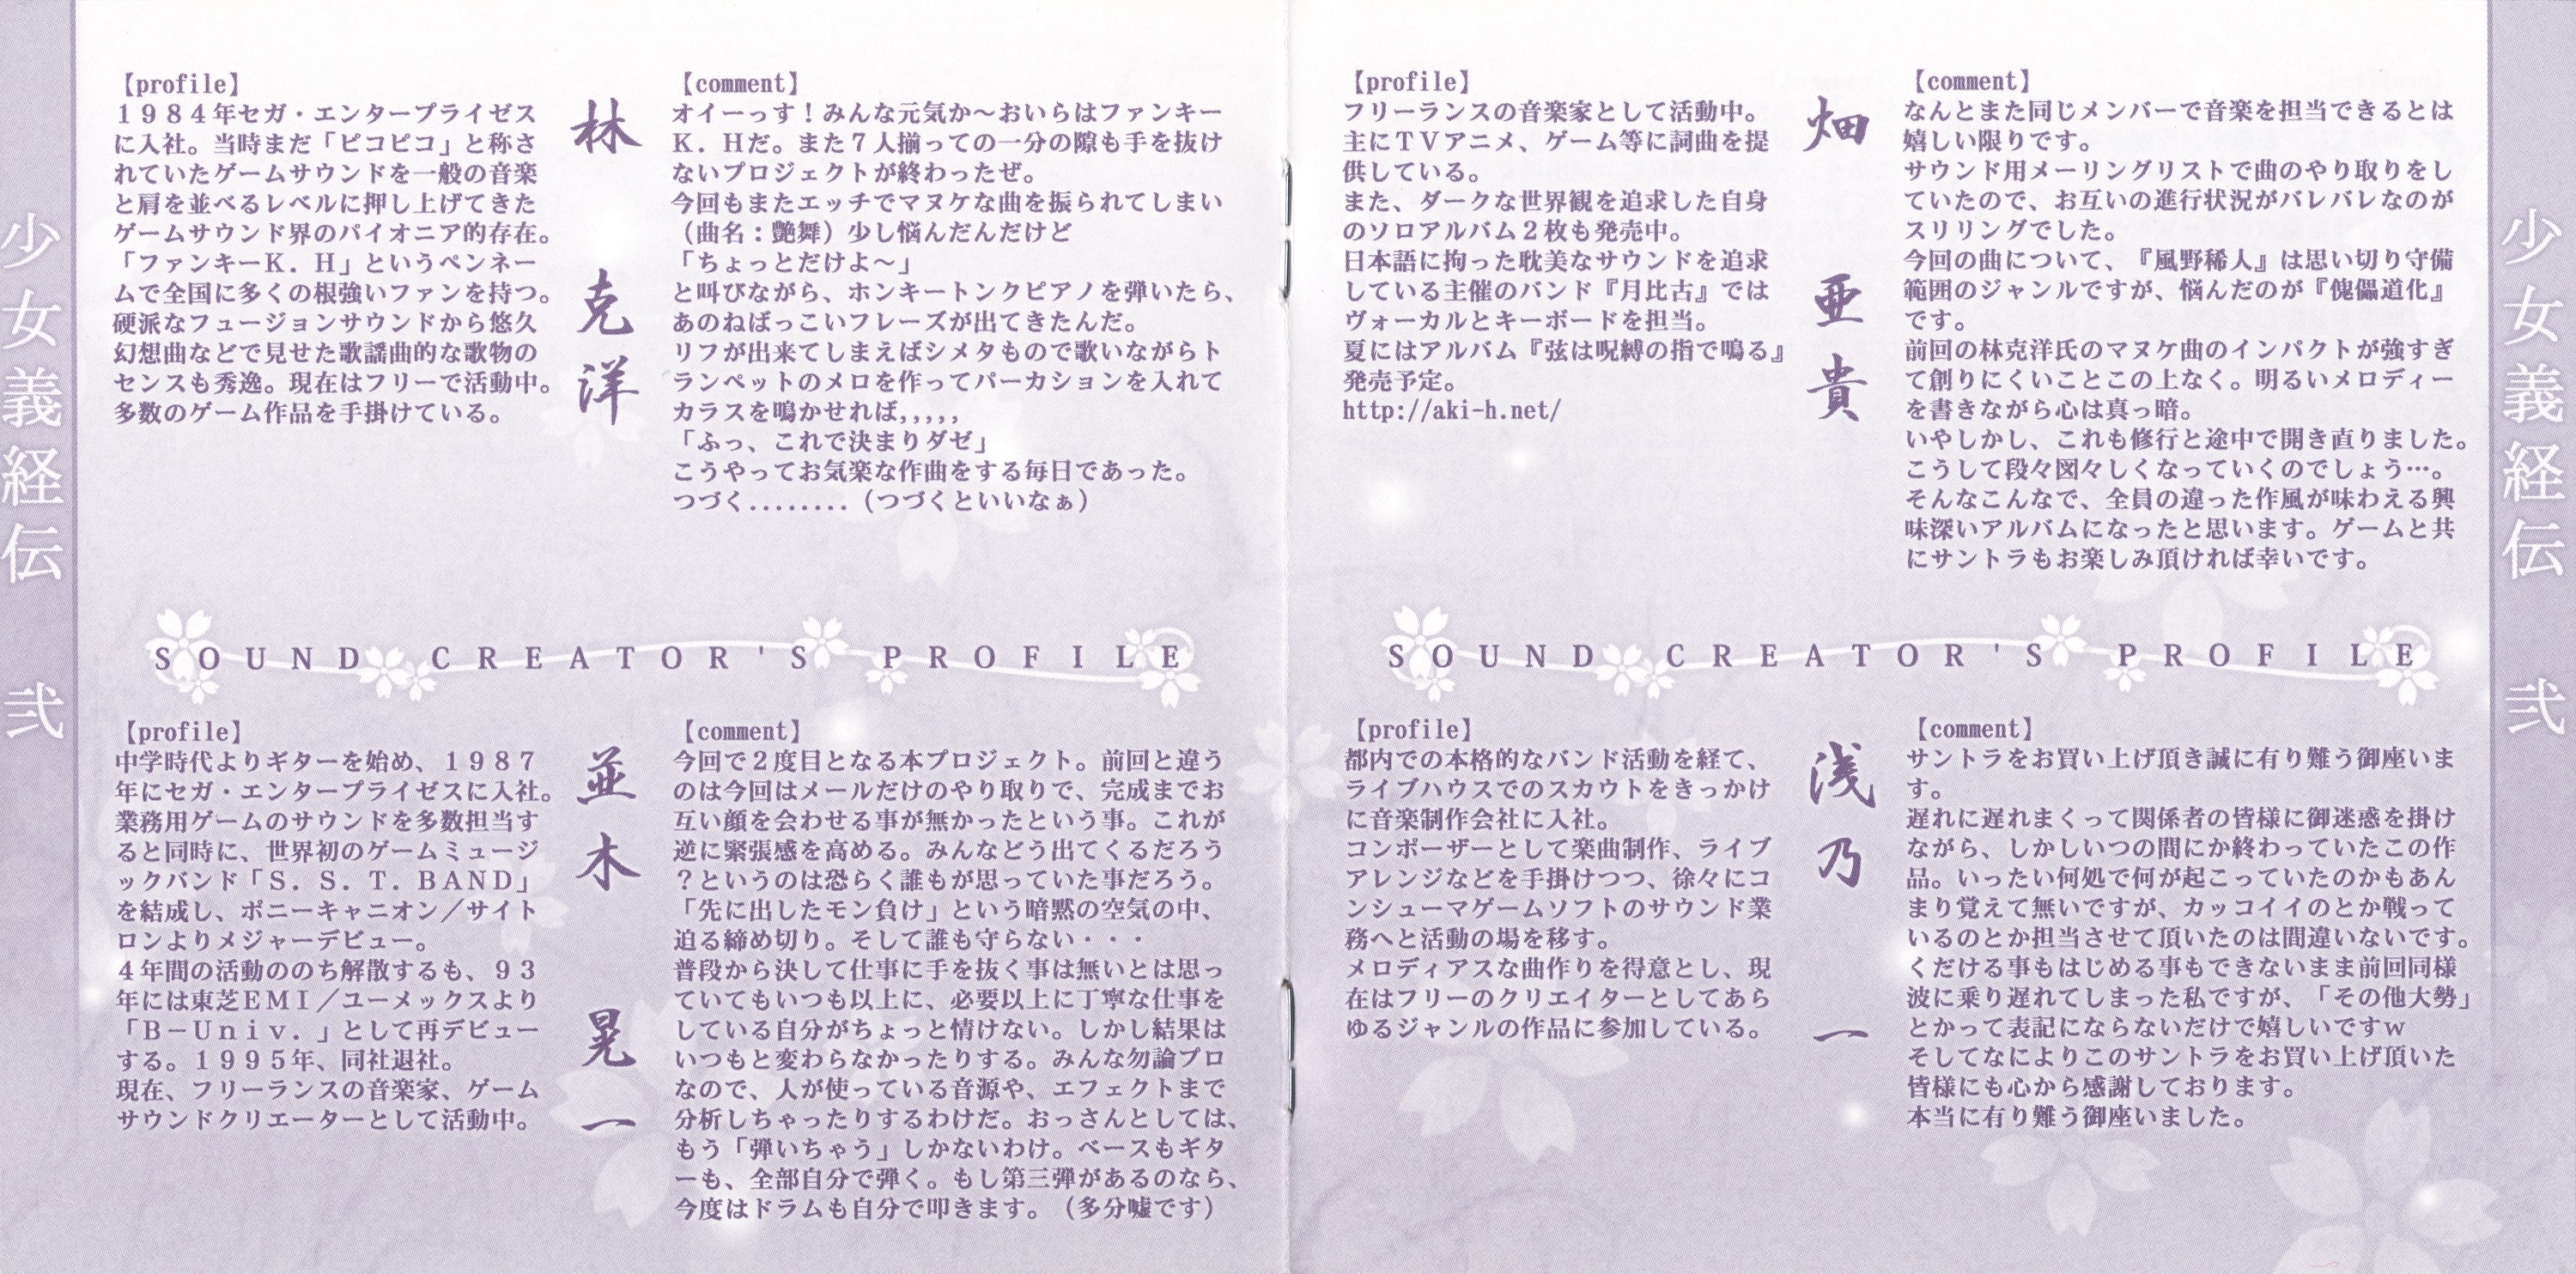 少女義経伝 弐
【profile】
1984年セガ・エンタープライゼス
に入社。当時まだ「ピコピコ」と称さ
れていたゲームサウンドを一般の音楽
と肩を並べるレベルに押し上げてきた
ゲームサウンド界のパイオニア的存在。
「ファンキーK.H」というペンネー
ムで全国に多くの根強いファンを持つ。
硬派なフュージョンサウンドから悠久
幻想曲などで見せた歌謡曲的な歌物の
センスも秀逸。現在はフリーで活動中。
多数のゲーム作品を手掛けている。
林 克洋
【comment】
オイーっす!みんな元気か〜おいらはファンキー
K.Hだ。また7人揃っての一分の隙も手を抜け
ないプロジェクトが終わったぜ。
今回もまたエッチでマヌケな曲を振られてしまい
(曲名:艶舞)少し悩んだんだけど
「ちょっとだけよ〜」
と叫びながら、ホンキートンクピアノを弾いたら、
あのねばっこいフレーズが出てきたんだ。
リフが出来てしまえばシメタもので歌いながらト
ランペットのメロを作ってパーカションを入れて
カラスを鳴かせれば,,,,,
「ふっ、これで決まりダゼ」
こうやってお気楽な作曲をする毎日であった。
つづく........(つづくといいなぁ)
SOUND CREATOR'S PROFILE
【profile】
中学時代よりギターを始め、1987
年にセガ・エンタープライゼスに入社。
業務用ゲームのサウンドを多数担当す
ると同時に、世界初のゲームミュージ
ックバンド「S.S.T.BAND」
を結成し、ポニーキャニオン/サイト
ロンよりメジャーデビュー。
4年間の活動ののち解散するも、93
年には東芝EMI/ユーメックスより
「B-Univ.」として再デビュー
する。1995年、同社退社。
現在、フリーランスの音楽家、ゲーム
サウンドクリエーターとして活動中。
並木 晃一
【comment】
今回で2度目となる本プロジェクト。前回と違う
のは今回はメールだけのやり取りで、完成までお
互い顔を会わせる事が無かったという事。これが
逆に緊張感を高める。みんなどう出てくるだろう
?というのは恐らく誰もが思っていた事だろう。
「先に出したモン負け」という暗黙の空気の中、
迫る締め切り。そして誰も守らない・・・
普段から決して仕事に手を抜く事は無いとは思っ
ていてもいつも以上に、必要以上に丁寧な仕事を
している自分がちょっと情けない。しかし結果は
いつもと変わらなかったりする。みんな勿論プロ
なので、人が使っている音源や、エフェクトまで
分析しちゃったりするわけだ。おっさんとしては、
もう「弾いちゃう」しかないわけ。ベースもギタ
ーも、全部自分で弾く。もし第三弾があるのなら、
今度はドラムも自分で叩きます。(多分嘘です)
【profile】
フリーランスの音楽家として活動中。
主にTVアニメ、ゲーム等に詞曲を提
供している。
また、ダークな世界観を追求した自身
のソロアルバム2枚も発売中。
日本語に拘った耽美なサウンドを追求
している主催のバンド『月比古』では
ヴォーカルとキーボードを担当。
夏にはアルバム『弦は呪縛の指で鳴る』
発売予定。
http://aki-h.net/
畑 亜貴
【comment】
なんとまた同じメンバーで音楽を担当できるとは
嬉しい限りです。
サウンド用メーリングリストで曲のやり取りをし
ていたので、お互いの進行状況がバレバレなのが
スリリングでした。
今回の曲について、『風野稀人』は思い切り守備
範囲のジャンルですが、悩んだのが『傀儡道化』
です。
前回の林克洋氏のマヌケ曲のインパクトが強すぎ
て創りにくいことこの上なく。明るいメロディー
を書きながら心は真っ暗。
いやしかし、これも修行と途中で開き直りました。
こうして段々図々しくなっていくのでしょう…。
そんなこんなで、全員の違った作風が味わえる興
味深いアルバムになったと思います。ゲームと共
にサントラもお楽しみ頂ければ幸いです。
SOUND CREATOR'S PROFILE
【profile】
都内での本格的なバンド活動を経て、
ライブハウスでのスカウトをきっかけ
に音楽制作会社に入社。
コンポーザーとして楽曲制作、ライブ
アレンジなどを手掛けつつ、徐々にコ
ンシューマゲームソフトのサウンド業
務へと活動の場を移す。
メロディアスな曲作りを得意とし、現
在はフリーのクリエイターとしてあら
ゆるジャンルの作品に参加している。
浅乃 一
【comment】
サントラをお買い上げ頂き誠に有り難う御座いま
す。
遅れに遅れまくって関係者の皆様に御迷惑を掛け
ながら、しかしいつの間にか終わっていたこの作
品。いったい何処で何が起こっていたのかもあん
まり覚えて無いですが、カッコイイのとか戦って
いるのとか担当させて頂いたのは間違いないです。
くだける事もはじめる事もできないまま前回同様
波に乗り遅れてしまった私ですが、「その他大勢」
とかって表記にならないだけで嬉しいですw
そしてなによりこのサントラをお買い上げ頂いた
皆様にも心から感謝しております。
本当に有り難う御座いました。
少女義経伝 弐